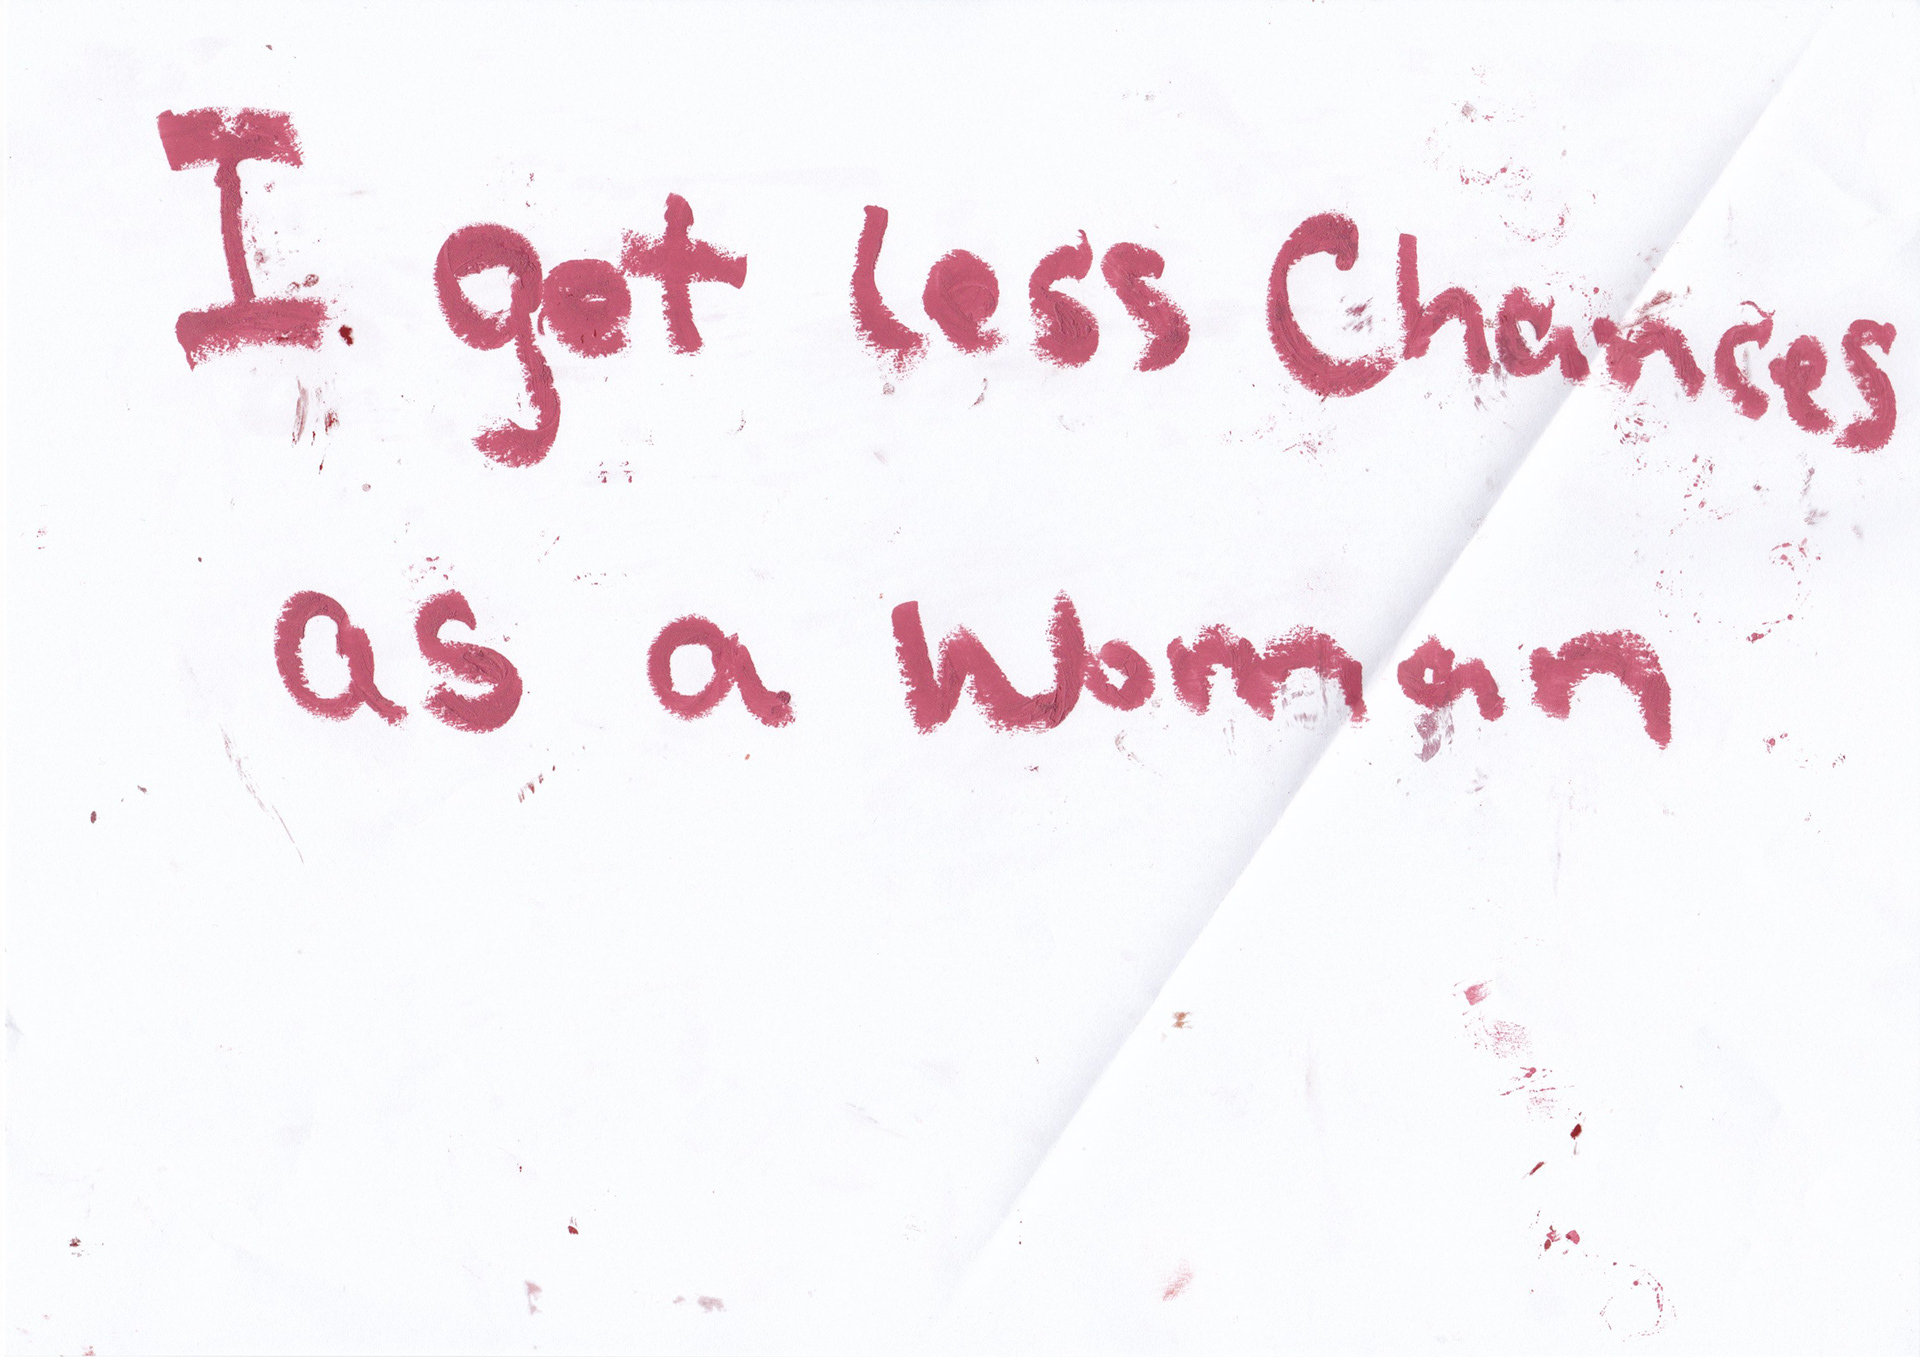 I got less Chances
as a Woman